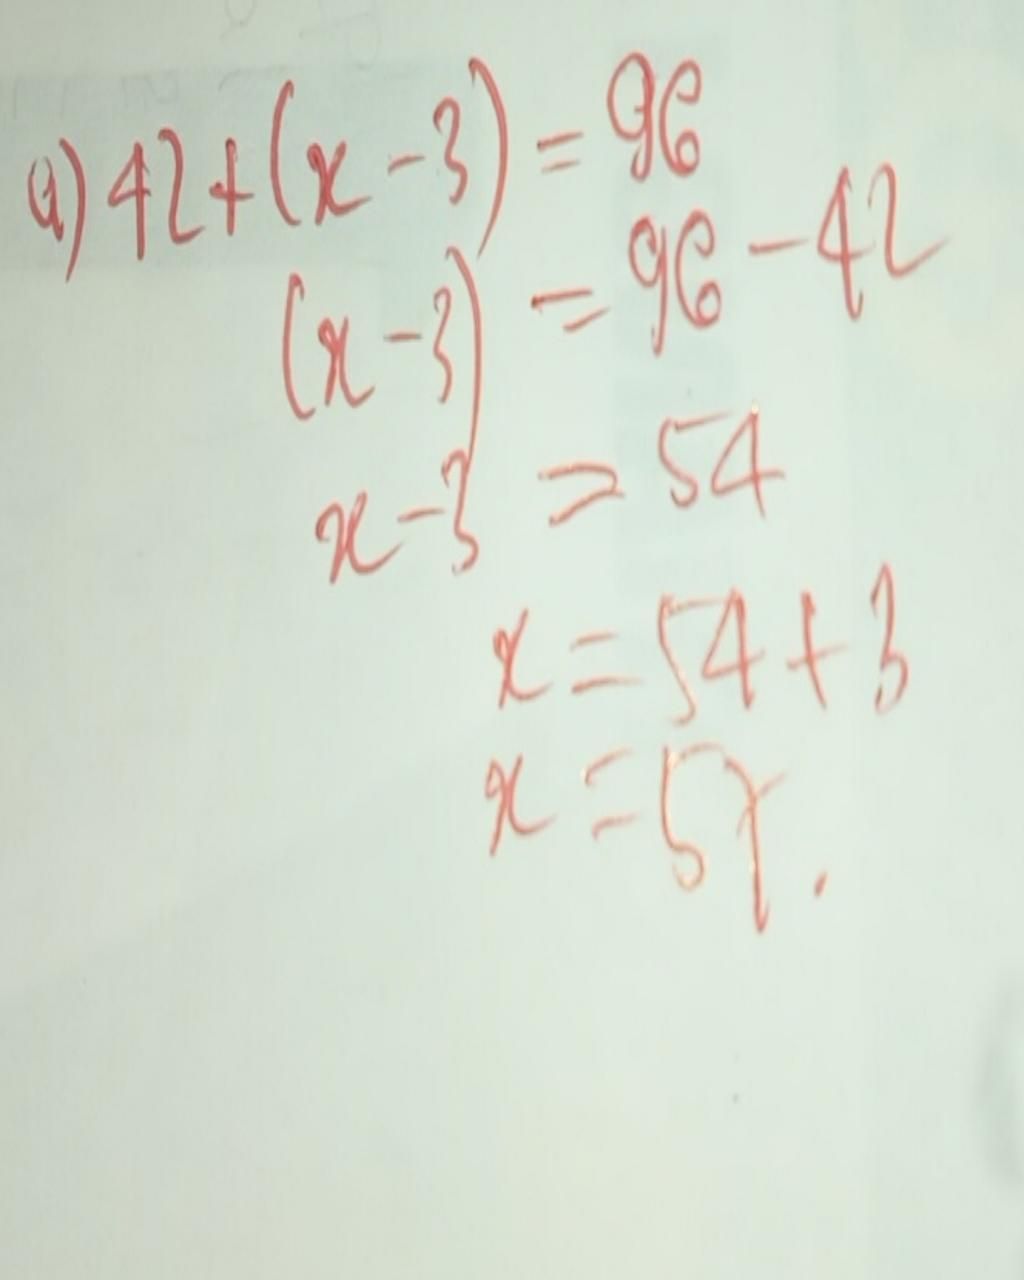 a) 42+(x-3) = 96
(x-3) = 96-42
x-3 = 54
x = 54+3
x = 57.